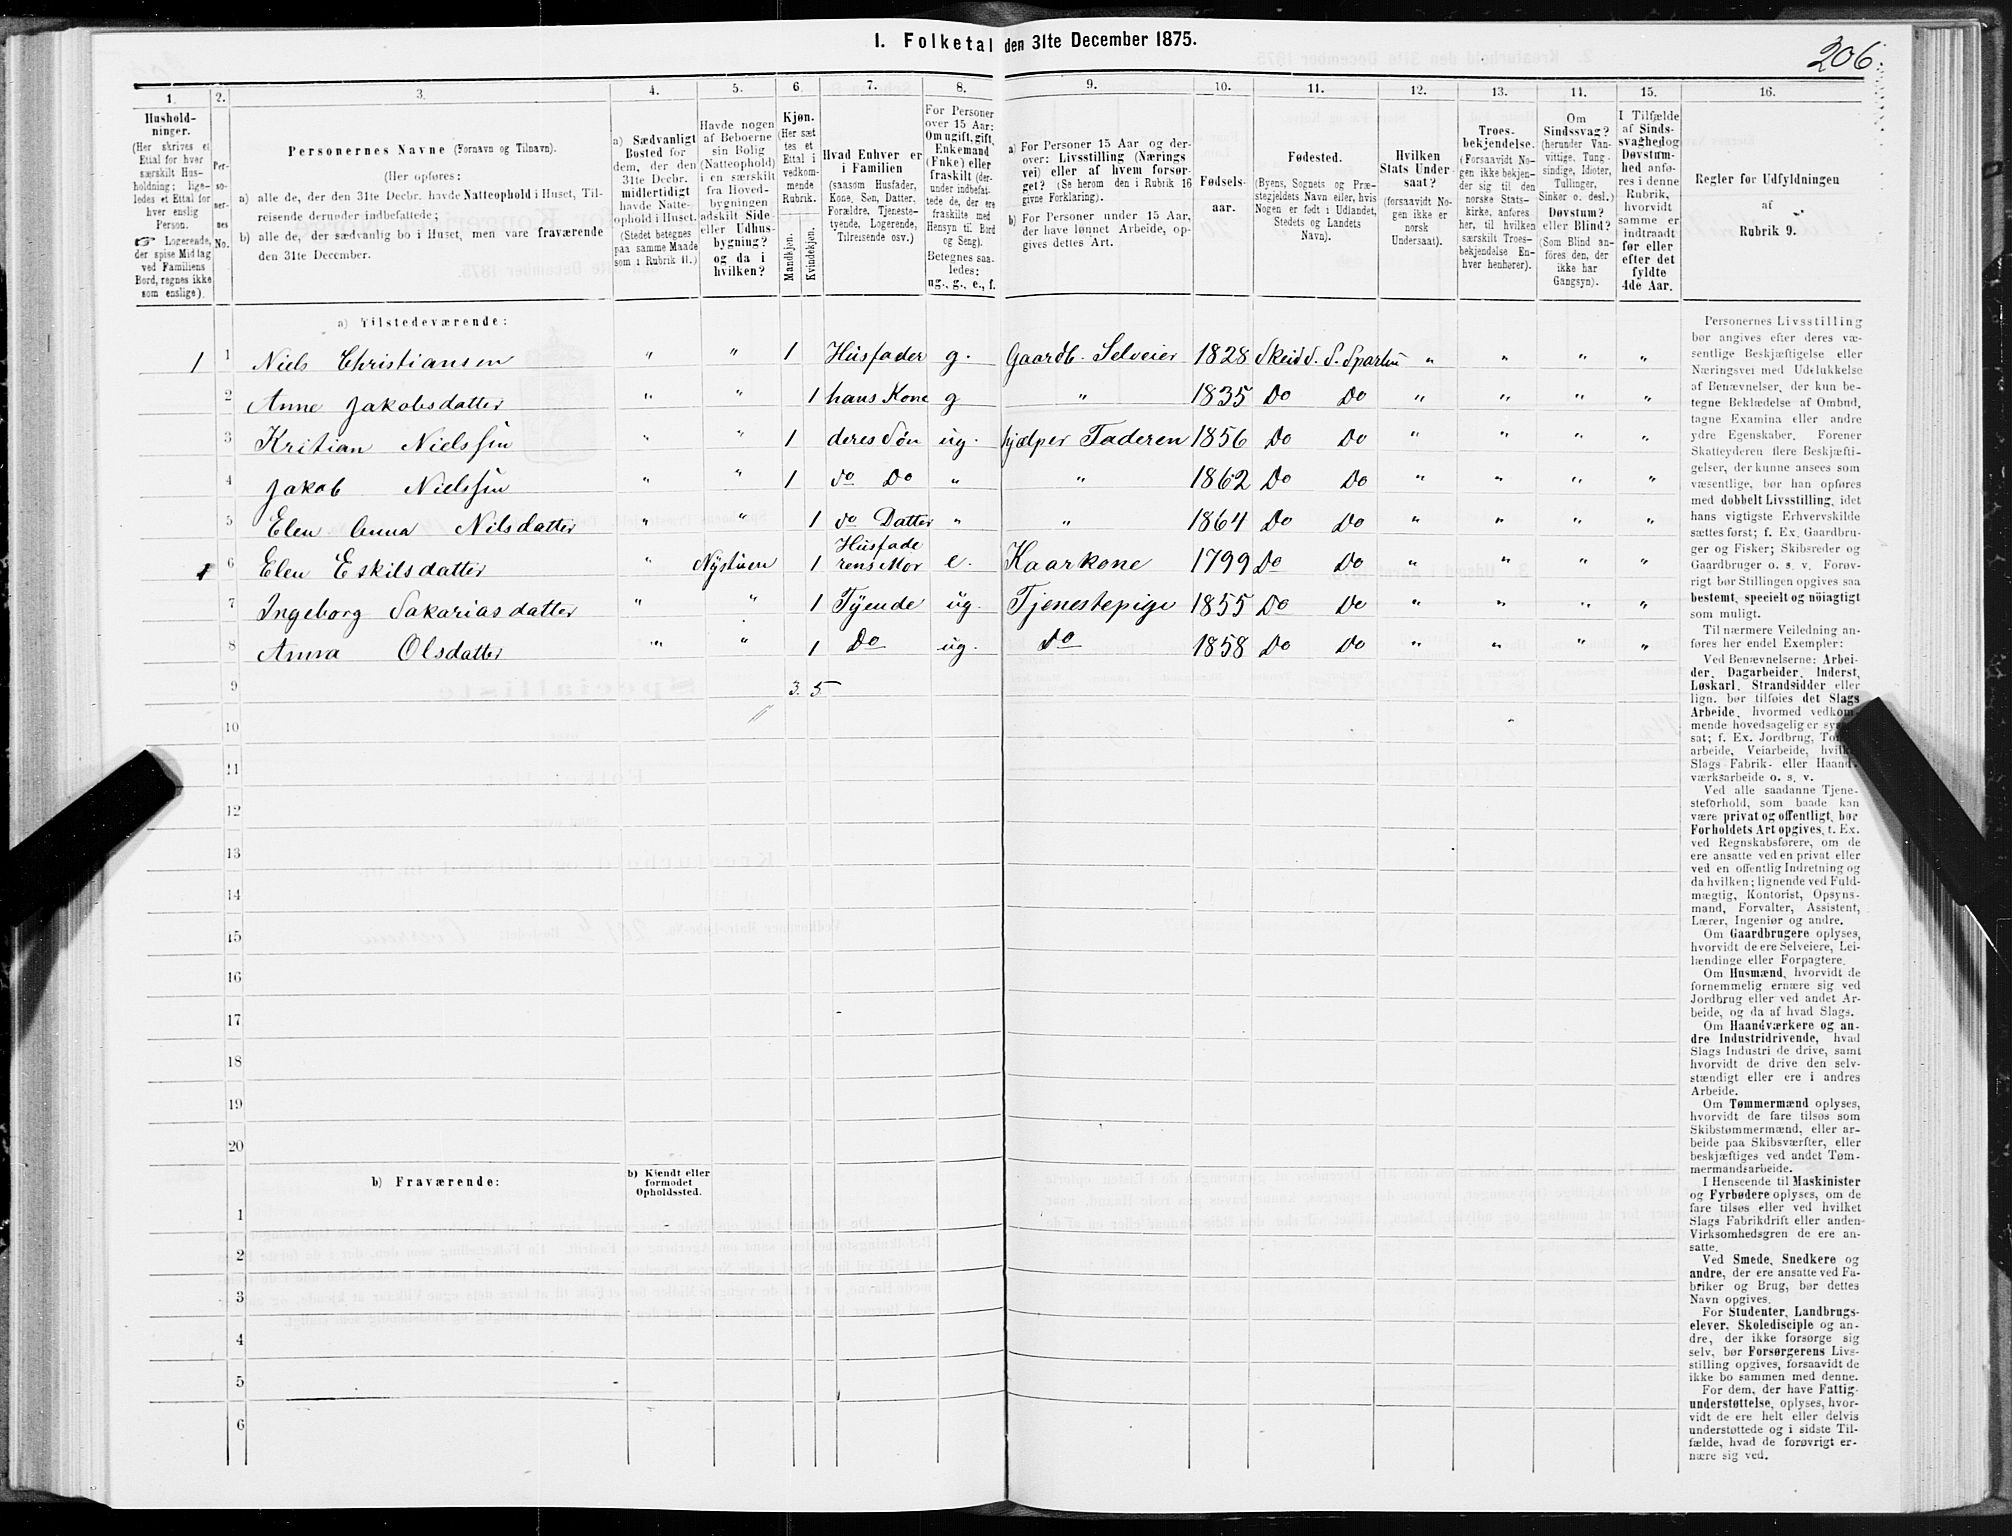 I. Folketal den 31te December 1875.
206.
1. 2. 3. 4. 5. 6. 7. 8. 9. 10. 11. 12. 13. 14. 15. 16.
Hushold-
ninger.
(Her skrives et
Ettal for hver
særskilt Hus-
holdning; lige-
ledes et Ettal for
hver enslig
Person.
☞ Logerende,
der spise Middag
ved Familiens
Bord, regnes ikke
som enslige).
Per-
so-
ner-
nes
No.
Personernes Navne (Fornavn og Tilnavn).
(Her opføres:
a) alle de, der den 31te Decbr. havde Natteophold i Huset, Til-
reisende derunder indbefattede;
b) alle de, der sædvanlig bo i Huset, men vare fraværende
den 31te December.
a) Sædvanligt
Bosted for
dem, der den
31te Decbr.
midlertidigt
havde Natte-
ophold i Huset.
(Stedet betegnes
paa samme Maade
som i Rubrik 11.)
Havde nogen
af Beboerne
sin Bolig
(Natteophold)
i en særskilt
fra Hoved-
bygningen
adskilt Side-
eller Udhus-
bygning?
og da i
hvilken?
Kjøn.
(Her sæt
tes et
Ettal i
vedkom-
mende
Rubrik.
Mandkjøn.
Kvindekjøn.
Hvad Enhver er
i Familien
(saasom Husfader,
Kone, Søn, Datter,
Forældre, Tjeneste-
tyende, Logerende,
Tilreisende osv.)
For Personer
over 15 Aar:
Om ugift, gift,
Enkemand
(Enke) eller
fraskilt (der-
under indbefat-
tede de, der ere
fraskilte med
Hensyn til Bord
og Seng).
Betegnes saa-
ledes:
ug., g., e., f.
a) For Personer 15 Aar og der-
over: Livsstilling (Nærings
vei) eller af hvem forsør-
get? (Se herom den i Rubrik 16
givne Forklaring).
b) For Personer under 15 Aar,
der have lønnet Arbeide, op-
gives dettes Art.
Fødsels-
aar.
Fødested.
(Byens, Sognets og Præ-
stegjeldets Navn eller, hvis
Nogen er født i Udlandet,
Stedets og Landets
Navn).
Hvilken
Stats Under
saat?
(forsaavidt No-
gen ikke er
norsk
Undersaat).
Troes-
bekjendelse.
(Forsaavidt No-
gen ikke bekjen-
der sig til den
norske Stats-
kirke, anføres
her, til hvilken
særskilt Troes-
bekjendelse En-
hver henhører).
Om
Sindssvag?
(herunder Van-
vittige, Tung-
sindige, Idioter,
Tullinger,
Sinker o. desl.)
Døvstum?
eller Blind?
(Som Blind an-
føres den, der
ikke har
Gangsyn).
I Tilfælde
af Sinds-
svaghed og
Døvstum-
hed anfø-
res i denne
Rubrik,
hvorvidt
samme er
indtraadt
før eller
efter det
fyldte
4de Aar.
Regler for Udfyldningen
af
Rubrik 9.
a) Tilstedeværende:
1 1 Niels Christiansen " " 1 Husfader g. Gaardb. Selveier 1828 Skeid S. S. Sparbu " " " "
2 Anne Jakobsdatter " " 1 hans Kone g " 1835 Do Do " " " "
3 Kritian Nielssøn " " 1 deres Søn ug. hjælper Faderen 1856 Do Do " " " "
4 Jakob Nielssøn " " 1 do Do " " 1862 Do Do " " " "
5 Elen Anna Nilsdatter " " 1 do Datter " " 1864 Do Do " " " "
1 6 Elen Eskilsdatter " Nystuen 1 Husfade rens Mor e. Kaarkone 1799 Do Do " " " "
7 Ingeborg Sakariasdatter " " 1 Tyende ug. Tjenestepige 1855 Do Do " " " "
8 Anna Olsdatter " " 1 Do ug. do 1858 Do Do " " " "
9 3. 5
10
11
12
13
14
15
16
17
18
19
20
b) Fraværende:
b) Kjendt eller
formodet
Opholdssted.
1
2
3
4
5
6
Personernes Livsstilling
bør angives efter deres væ-
sentlige Beskjæftigelse eller
Næringsvei med Udelukkelse
af Benævnelser, der kun be-
tegne Beklædelse af Ombud,
tagne Examina eller andre
ydre Egenskaber. Forener
Skatteyderen flere Beskjæfti-
gelser, der kunne ansees som
væsentlige, bør han opføres
med dobbelt Livsstilling, idet
hans vigtigste Erhvervskilde
sættes først; f. Ex. Gaardbru-
ger og Fisker; Skibsreder og
Gaardbruger o. s. v. Forøv-
rigt bør Stillingen opgives saa
bestemt, specielt og nöiagtigt
som muligt.
Til nærmere Veiledning an-
føres her endel Exempler:
Ved Benævnelserne: Arbei-
der, Dagarbeider, Inderst,
Løskarl, Strandsidder eller
lign. bør tilføies det Slags
Arbeide, hvormed vedkom-
mende hovedsagelig er syssel-
sat; f. Ex. Jordbrug, Tomte-
arbeide, Veiarbeide, hvilket
Slags Fabrik- eller Haand-
værksarbeide o. s. v.
Ved alle saadanne Tjene-
steforhold, som baade kan
være privat og offentligt, bør
Forholdets Art opgives, t. Ex.
ved Regnskabsførere, om de
ere ansatte ved en privat eller
ved en offentlig Indretning og
da hvilken; lignende ved Fuld-
mægtig, Kontorist, Opsyns-
mand, Forvalter, Assistent,
Lærer, Ingeniør og andre.
Om Gaardbrugere oplyses,
hvorvidt de ere Selveiere, Lei-
lændinge eller Forpagtere.
Om Husmænd, hvorvidt de
fornemmelig ernære sig ved
Jordbrug eller ved andet Ar-
beide, og da af hvad Slags.
Om Haandværkere og an-
dre Industridrivende, hvad
Slags Industri de drive, samt
hvorvidt de drive den selv-
stændigt eller ere i andres
Arbeide.
Om Tømmermænd oplyses,
hvorvidt de fare tilsøs som
Skibstømmermænd, eller ar-
beide paa Skibsværfter, eller
beskjæftiges ved andet Tøm-
mermandsarbeide.
I Henseende til Maskinister
og Fyrbødere oplyses, om de
fare tilsøs eller ved hvilket
Slags Fabrikdrift eller anden-
Virksomhedsgren de ere an-
satte.
Ved Smede, Snedkere og
andre, der ere ansatte ved Fa-
briker og Brug, bør dettes
Navn opgives.
For Studenter, Landbrugs-
elever, Skoledisciple og an-
dre, der ikke forsørge sig
selv, bør Forsørgerens Livs-
stilling opgives, forsaavidt de
ikke bo sammen med denne.
For dem, der have Fattig-
understøttelse, oplyses, hvor-
vidt de ere helt eller delvis
understøttede og i sidste Til-
fælde, hvad de forøvrigt er-
nære sig ved.